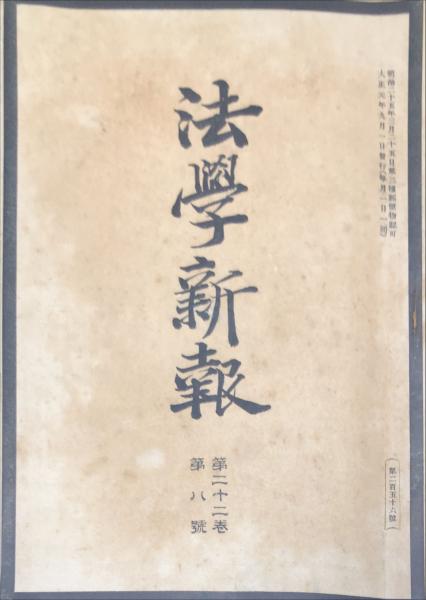 明治二十五年三月二十五日第三種郵便物認可
大正元年九月一日發行(每月一回一日)
法學新報
第二十二卷
第八號
(第二百五十六號)